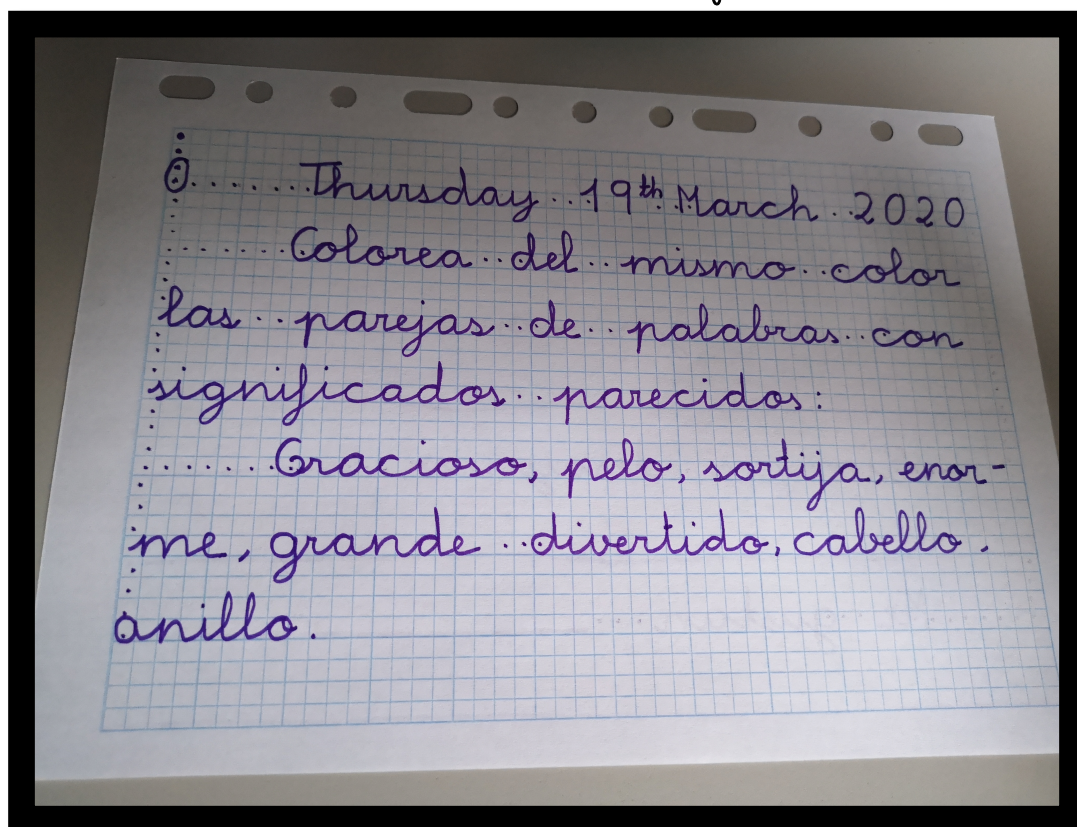 Thursday 19th March 2020
Colorea del mismo color
las parejas de palabras con
significados parecidos:
Gracioso, pelo, sortija, enor-
me, grande divertido, cabello,
anillo.